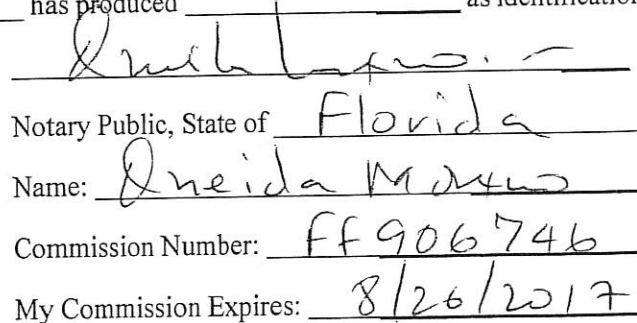 has produced as identification
Notary Public, State of Florida
Name: Oneida
Commission Number: FF906746
My Commission Expires: 8/26/2017